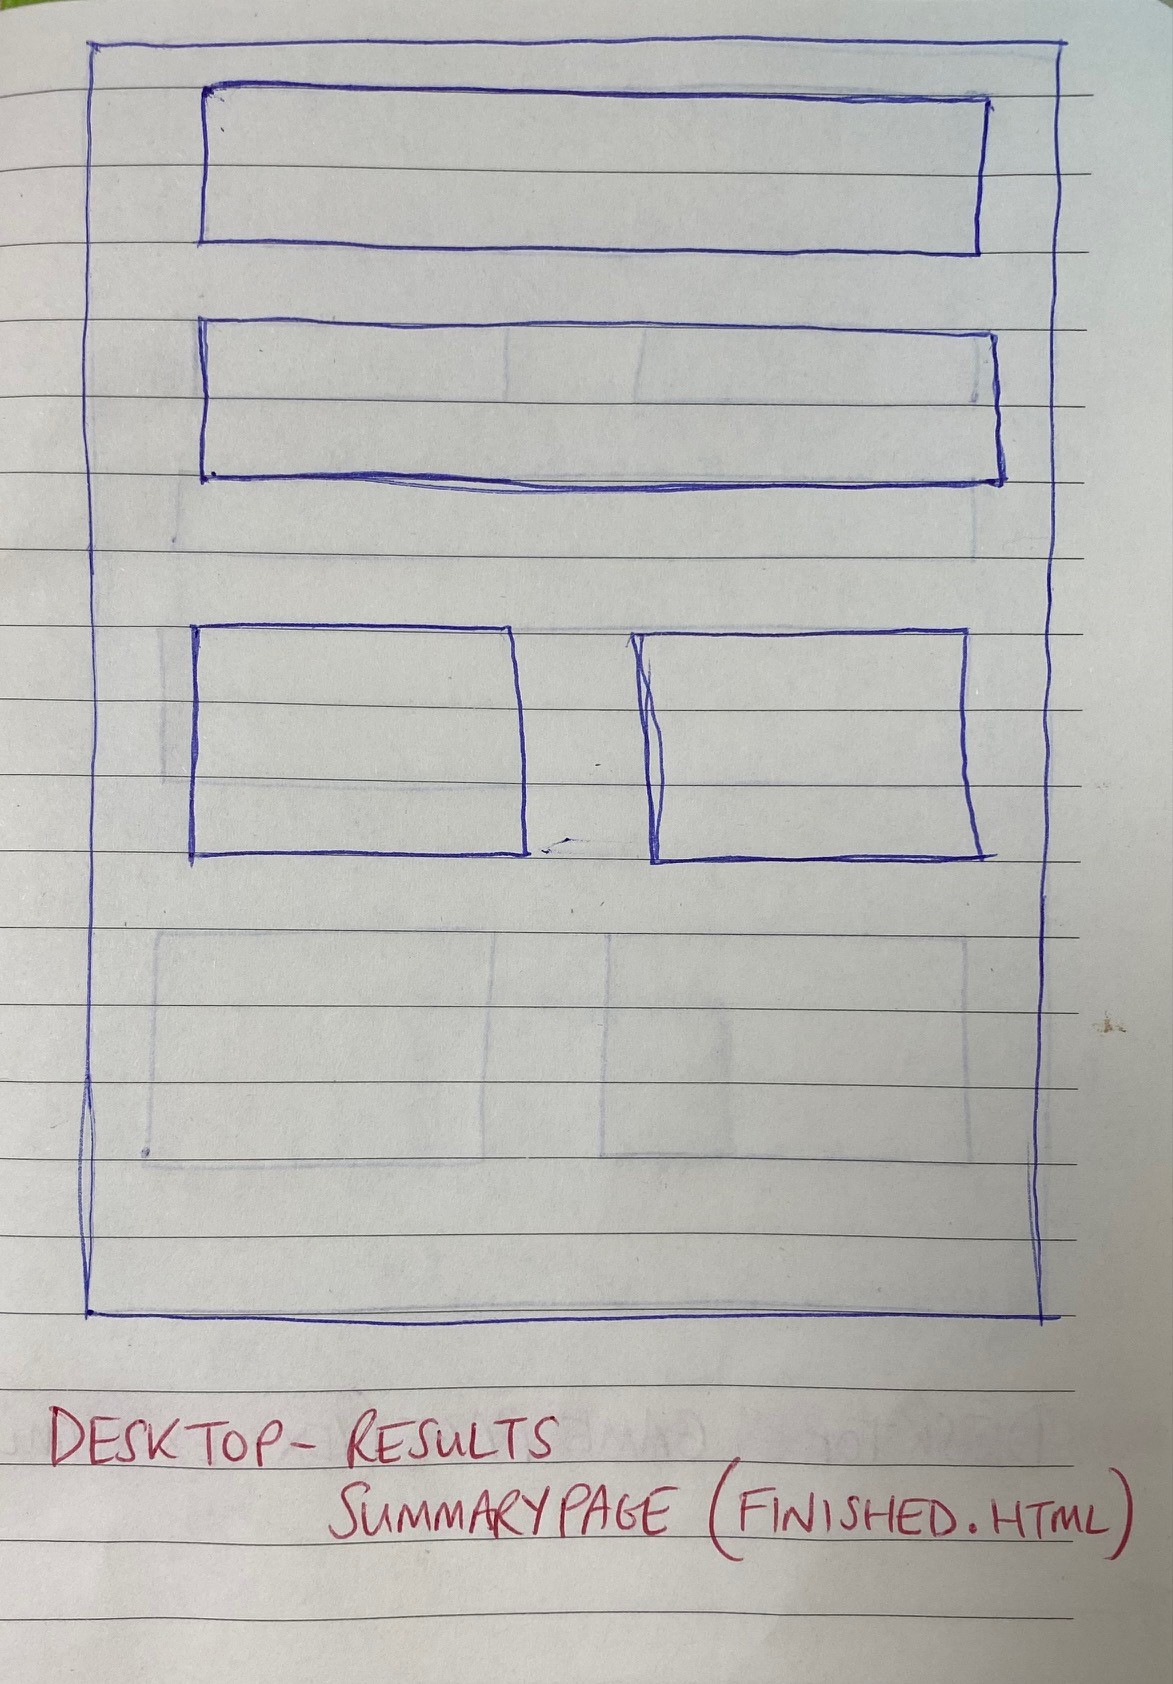 DESKTOP - RESULTS
SUMMARY PAGE (FINISHED.HTML)